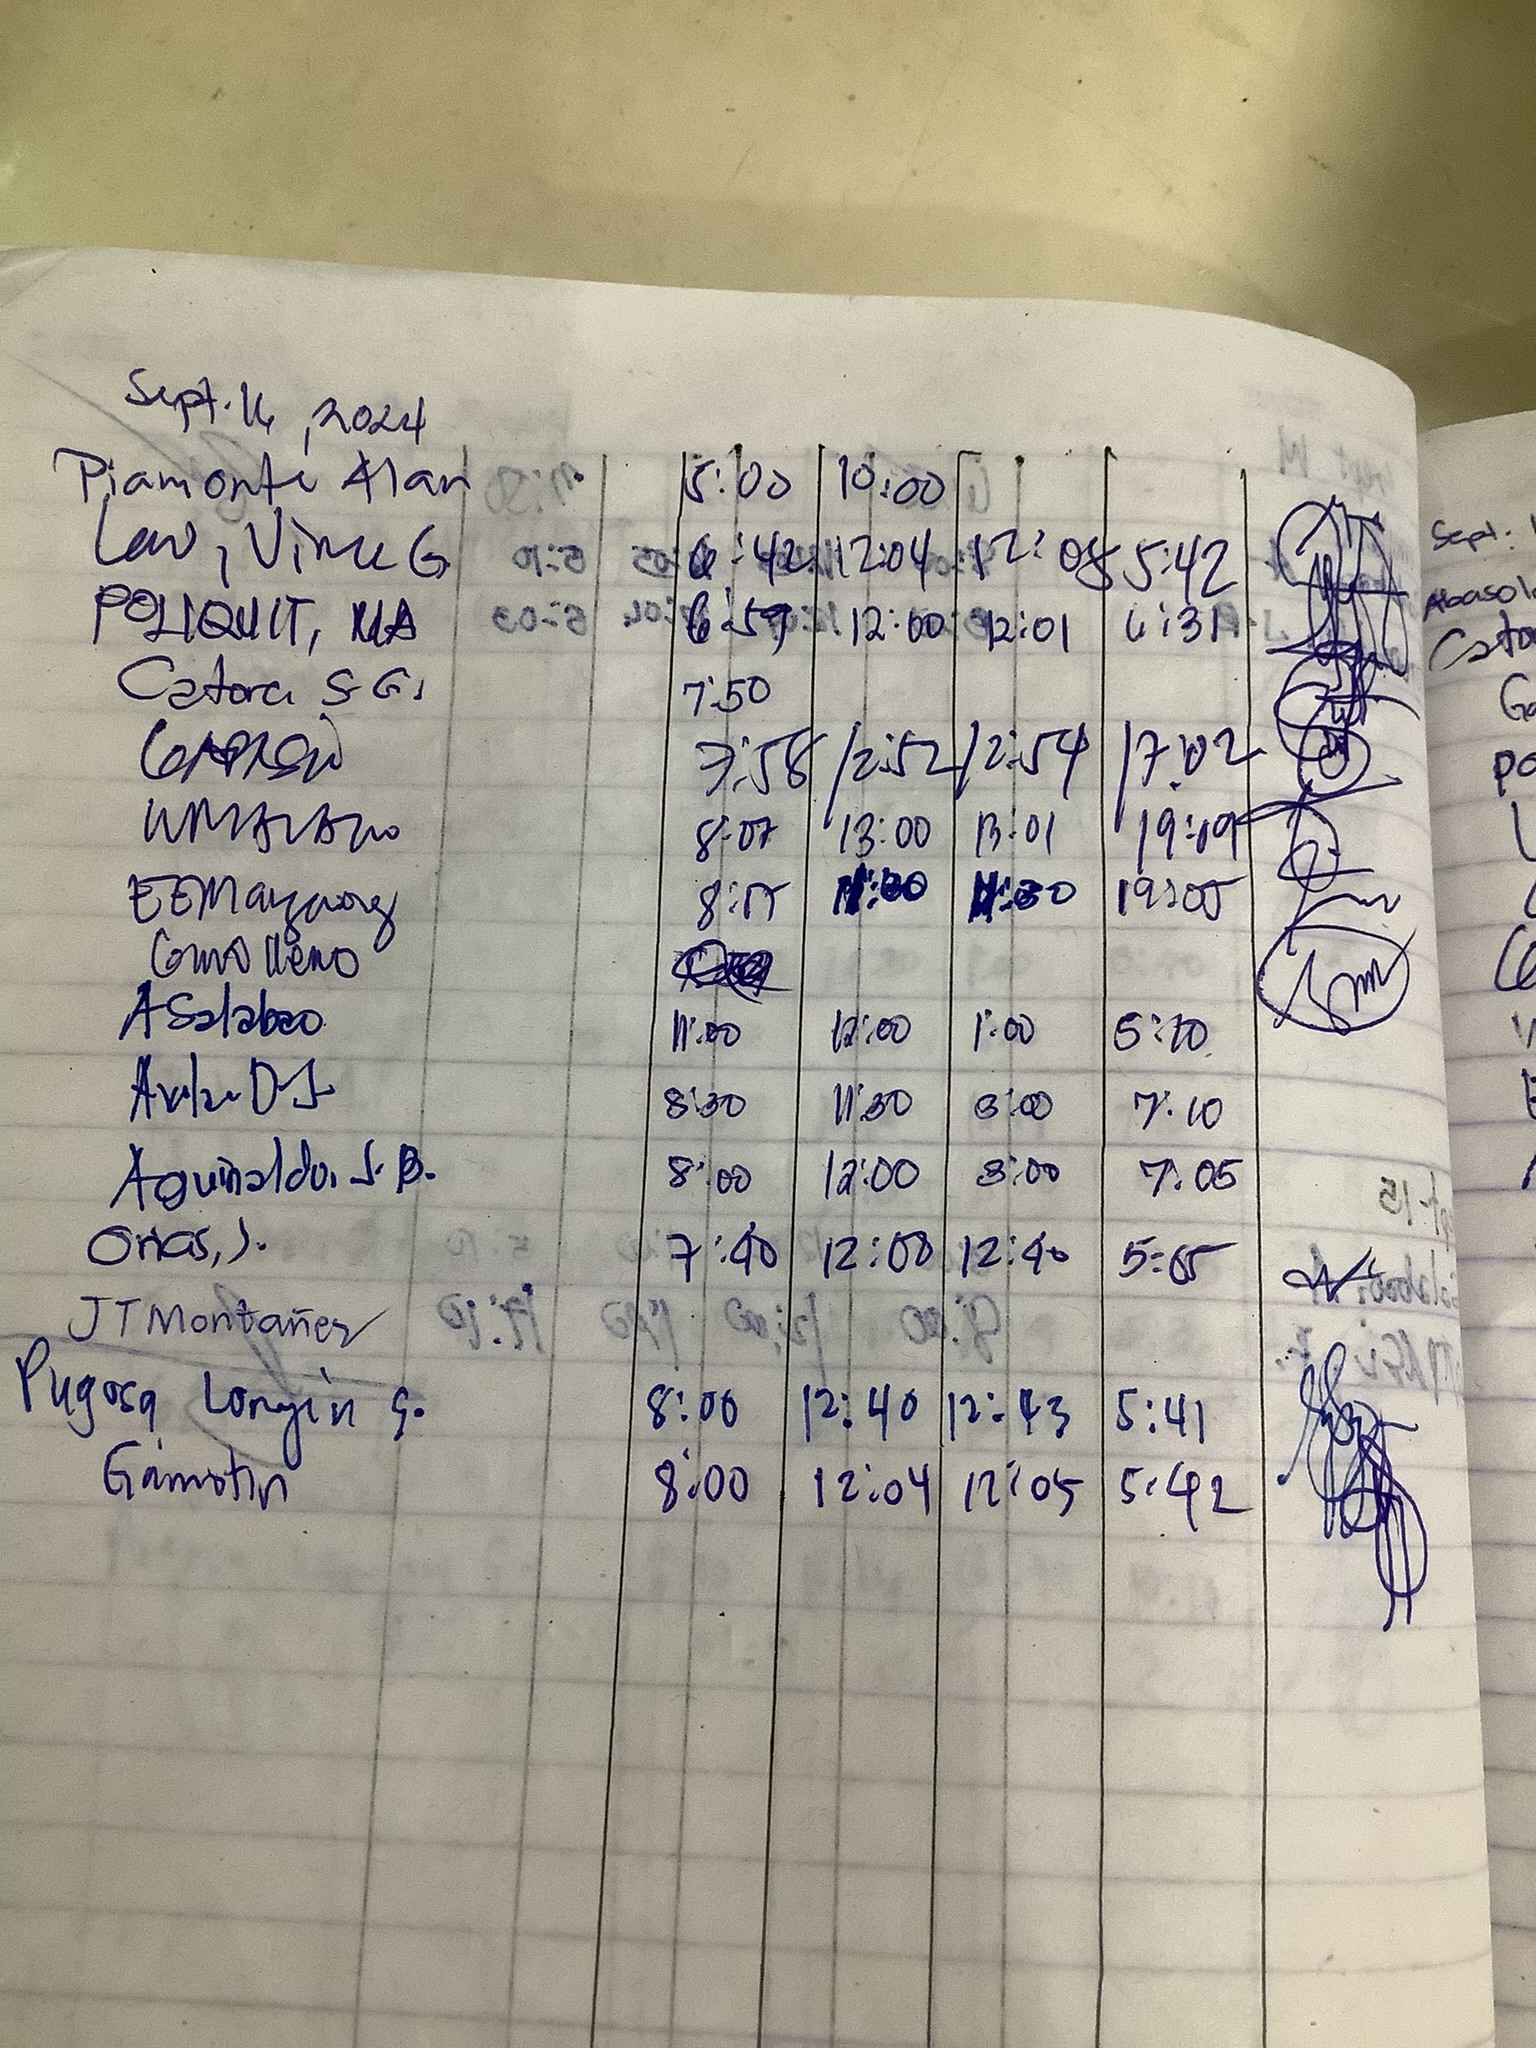 Sept. 16, 2024
Piamonte Alan 5:00 10:00
Law, Vince G. 6:42 12:04 12:05 5:42
POLIQUIT, MA 6:59 12:00 12:01 6:31
Catora S.G. 7:50
7:58 12:52 12:54 17:02
8:07 13:00 13:01 19:09
EEMaywong 8:15 11:30 11:30 19:05
ASalabao 11:00 12:00 1:00 5:10
8:30 11:30 3:00 7:10
Aguinaldo, J. B. 8:00 12:00 3:00 7:05
Orias, J. 7:40 12:00 12:40 5:05
JTMontañez
Pugosa, Longin G. 8:00 12:40 12:43 5:41
Gamotin 8:00 12:04 12:05 5:42
Sept.
Abasol
Cator